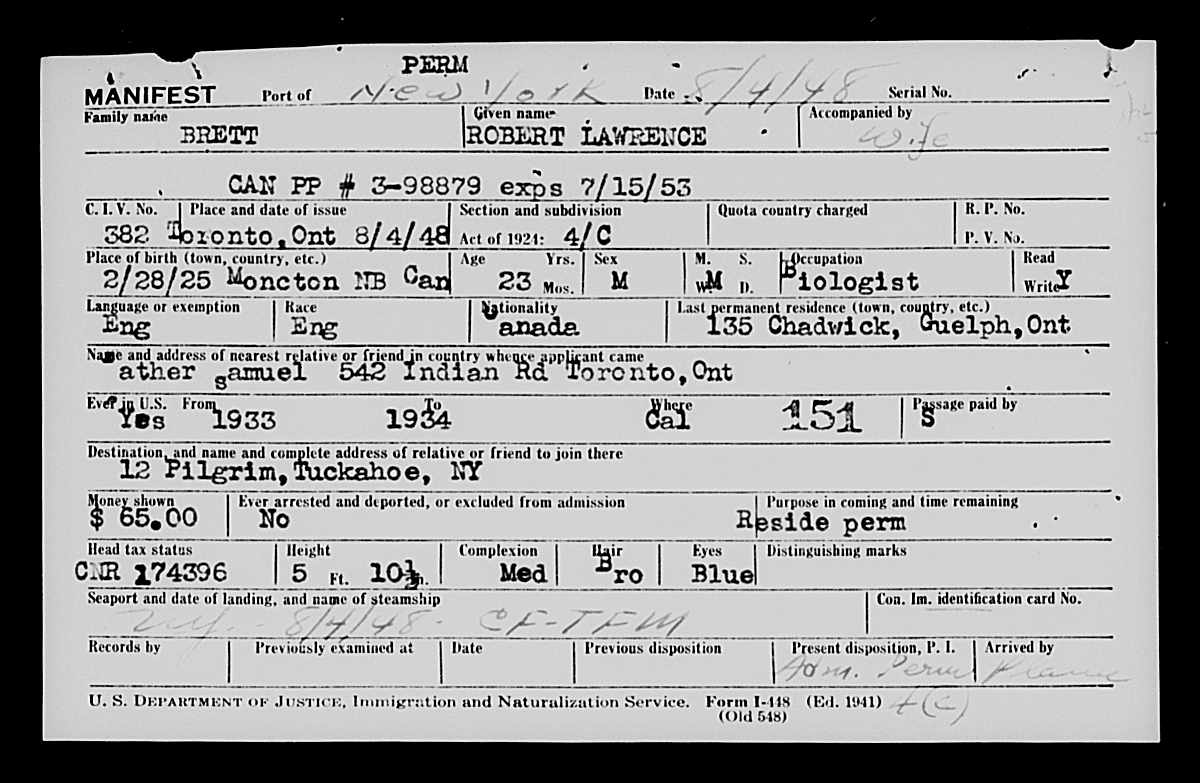 PERM
MANIFEST Port of New York Date 8/4/48 Serial No.
Family name BRETT Given name ROBERT LAWRENCE Accompanied by Wife
CAN PP # 3-98879 exps 7/15/53
C. I. V. No. Place and date of issue Section and subdivision Quota country charged R. P. No.
382 Toronto,Ont 8/4/48 Act of 1924: 4/C P. V. No.
Place of birth (town, country, etc.) Age Yrs. Sex M. S. Occupation Read
2/28/25 Moncton NB Can 23 Mos. M W. M D. Biologist Write Y
Language or exemption Race Nationality Last permanent residence (town, country, etc.)
Eng Eng Canada 135 Chadwick, Guelph,Ont
Name and address of nearest relative or friend in country whence applicant came
Father Samuel 542 Indian Rd Toronto,Ont
Ever in U.S. From To Where Passage paid by
Yes 1933 1934 Cal 151 S
Destination, and name and complete address of relative or friend to join there
12 Pilgrim,Tuckahoe, NY
Money shown Ever arrested and deported, or excluded from admission Purpose in coming and time remaining
$ 65.00 No Reside perm
Head tax status Height Complexion Hair Eyes Distinguishing marks
CNR 174396 5 Ft. 10½ In. Med Bro Blue
Seaport and date of landing, and name of steamship Con. Im. identification card No.
NY. 8/4/48. CF-TFM
Records by Previously examined at Date Previous disposition Present disposition, P. I. Arrived by
Adm. Perm Plane
U. S. DEPARTMENT OF JUSTICE, Immigration and Naturalization Service. Form I-448 (Ed. 1941) 4(c)
(Old 548)